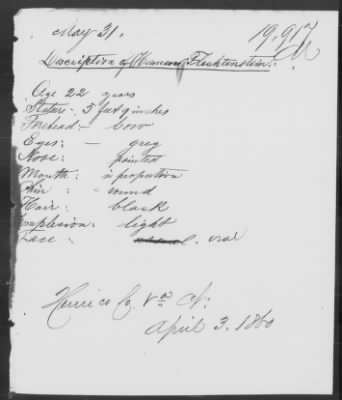 May 31.
19,917
Description of Herman Flechtenstein:
Age 22 years
Stature:- 5 feet 9 inches
Forehead:- low
Eyes: - grey
Nose: pointed
Mouth: in proportion
Chin : - round
Hair : black
Complexion: light
Face : oval
Henrico Co, Va
April 3. 1860